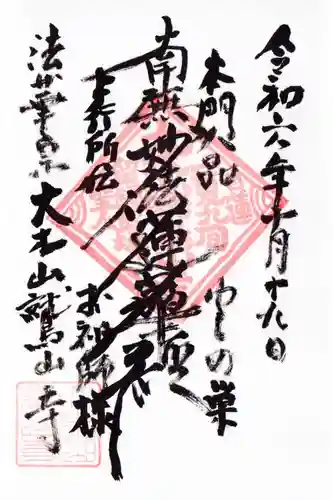 令和六年十月十九日
本門八品
ゆしの巣
南無妙法蓮華経
上行所伝
お祖師様
法華宗大本山鷲山寺